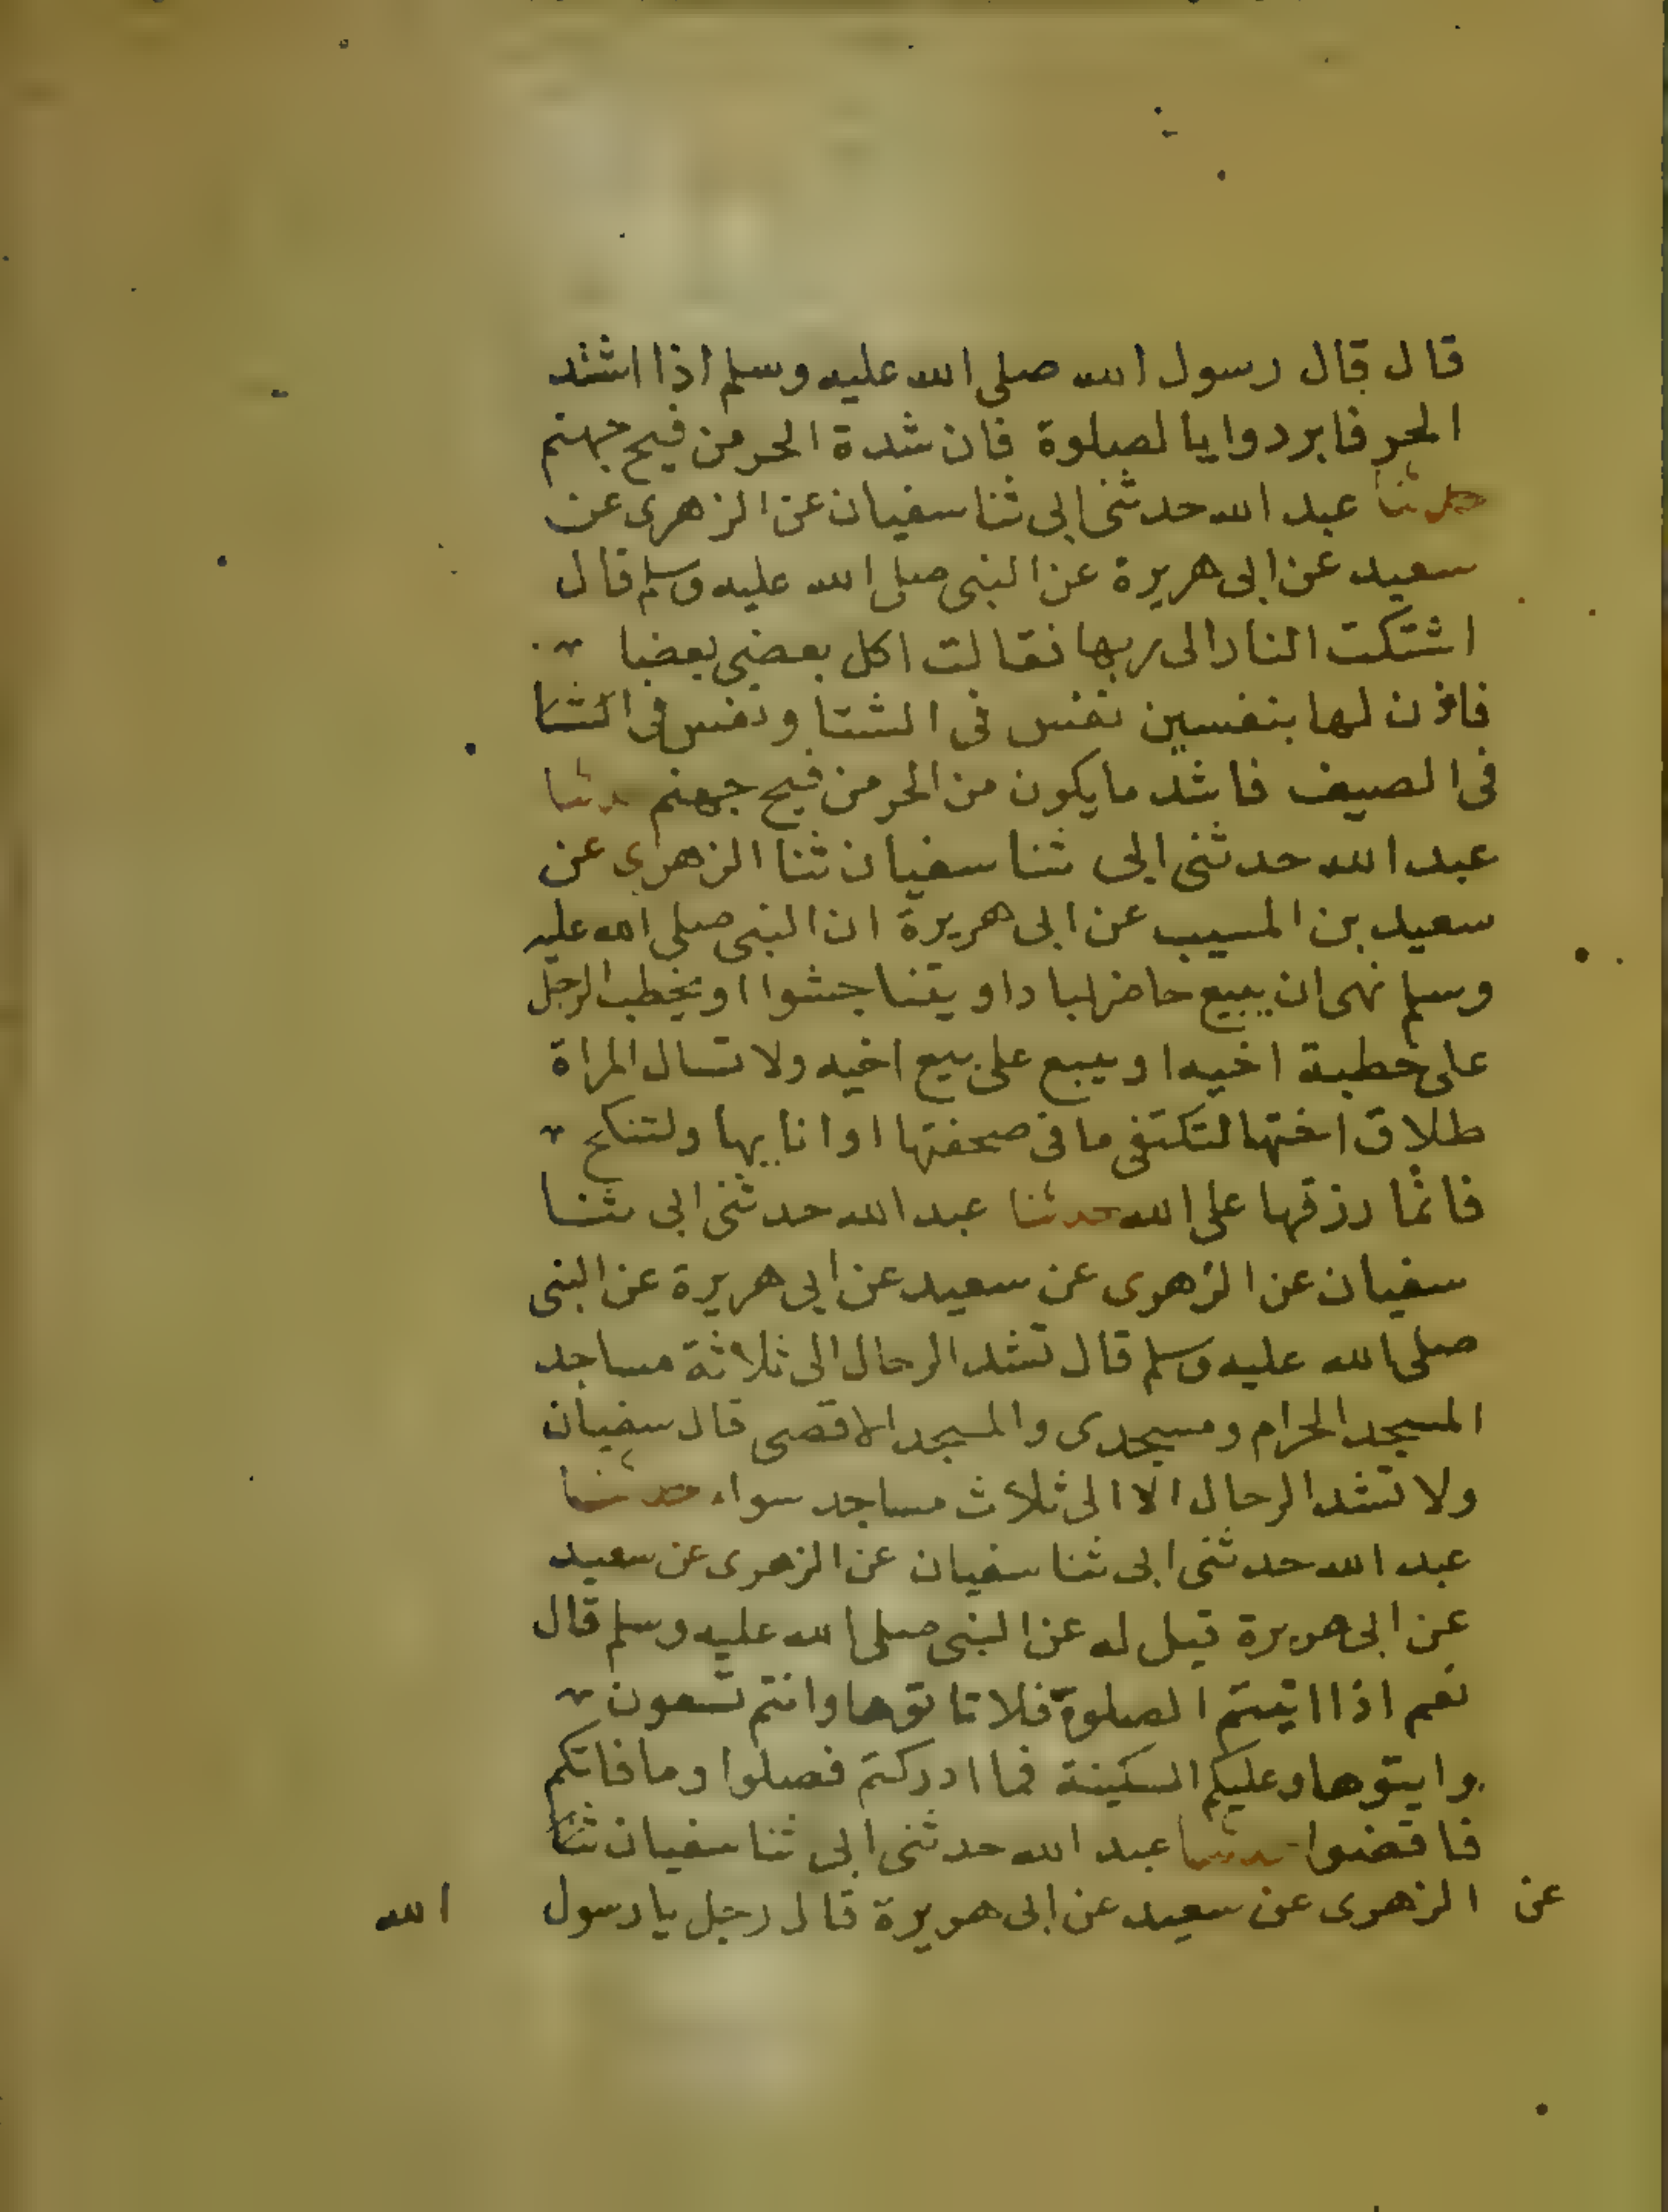 قال قال رسول الله صلى الله عليه وسلم اذا اشتد
الحر فابردوا بالصلوة فان شدة الحر من فيح جهنم
حدثنا عبد الله حدثنى ابى ثنا سفيان عن الزهرى عن
سعيد عن ابى هريرة عن النبى صلى الله عليه وسلم قال
اشتكت النار الى ربها فقالت اكل بعضى بعضا
فاذن لها بنفسين نفس فى الشتا ونفس فى الشتا
فى الصيف فاشد ما يكون من الحر من فيح جهنم حدثنا
عبد الله حدثنى ابى ثنا سفيان ثنا الزهرى عن
سعيد بن المسيب عن ابى هريرة ان النبى صلى الله عليه
وسلم نهى ان يبيع حاضر لباد او يتناجشوا او يخطب الرجل
على خطبة اخيه او يبيع على بيع اخيه ولا تسال المراة
طلاق اختها لتكتفى ما فى صحفتها او انايها ولتنكح
فانما رزقها على الله حدثنا عبد الله حدثنى ابى ثنا
سفيان عن الزهرى عن سعيد عن ابى هريرة عن النبى
صلى الله عليه وسلم قال تشد الرحال الى ثلاثة مساجد
المسجد الحرام ومسجدى والمسجد الاقصى قال سفيان
ولا تشد الرحال الا الى ثلاث مساجد سواء حدثنا
عبد الله حدثنى ابى ثنا سفيان عن الزهرى عن سعيد
عن ابى هريرة قيل له عن النبى صلى الله عليه وسلم قال
نعم اذا اتيتم الصلوة فلا تاتوها وانتم تسعون
وايتوها وعليكم السكينة فما ادركتم فصلوا وما فاتكم
فاقضوا حدثنا عبد الله حدثنى ابى ثنا سفيان ثنا
عن الزهرى عن سعيد عن ابى هريرة قال رجل يا رسول
الله